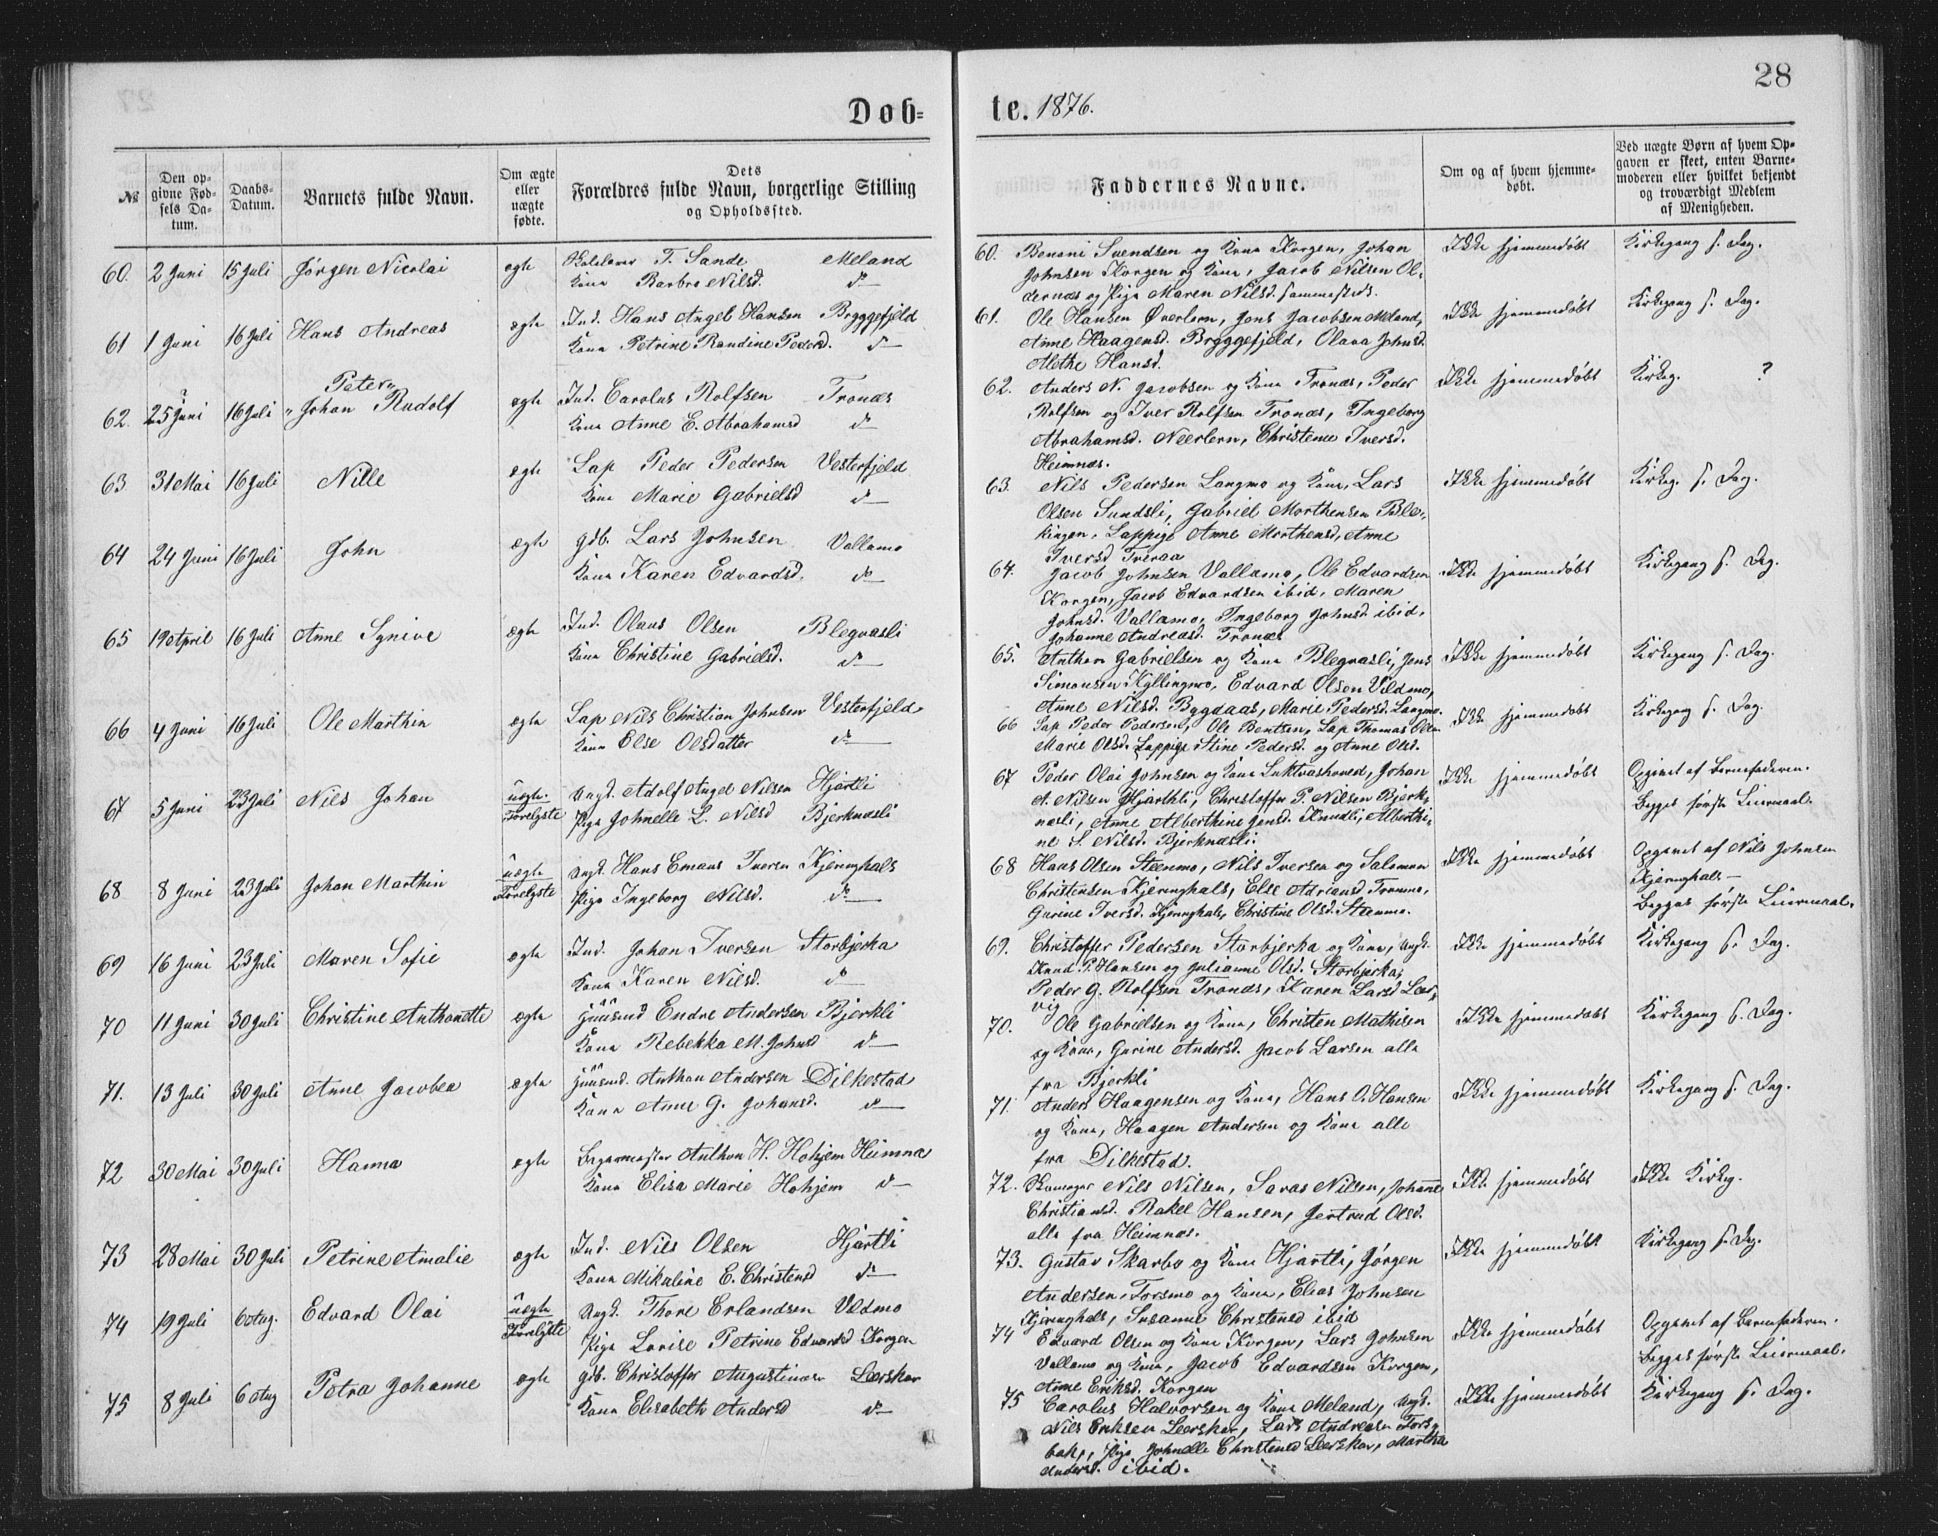 28
Døb=
te. 1876.
№
Den op-
givne Fød-
sels Da-
tum.
Daabs-
Datum.
Barnets fulde Navn.
Om ægte
eller
uægte
fødte.
Dets
Forældres fulde Navn, borgerlige Stilling
og Opholdssted.
Faddernes Navne.
Om og af hvem hjemme-
døbt.
Ved uægte Børn af hvem Op-
gaven er skeet, enten Barne-
moderen eller hvilket bekjendt
og troværdigt Medlem
af Menigheden.
60. 2 Juni 15 Juli Jørgen Nicolai ægte T. Sande Meland
Kone Barbro Nilsd. do
60. Benoni Svendsen og Kone Korgen, Johan
Johnsen Korgen og Kone, Jacob Nilsen Ol-
dernæs og Pige Maren Nilsd. sammesteds.
Ikke hjemmedøbt
Kirkegang s. Dag.
61 1 Juni 16 Juli Hans Andreas ægte Ind. Hans Angel Hansen Bryggefjeld
Kone Petrine Randine Pedersd. do
61. Ole Hansen Øverlern, Jens Jacobsen Meland,
Anne Haagensd. Bryggefjeld, Olava Johnsd.
Alethe Hansd.
Ikke hjemmedøbt
Kirkegang s. Dag.
Peter
62. 25 Juni 16 Juli Johan Rudolf ægte Ind. Carolus Rolfsen Tronæs
Kone Anne E. Abrahamsd do
62. Anders N. Jacobsen og Kone Tronæs, Peder
Rolfsen og Iver Rolfsen Tronæs, Ingeborg
Abrahamsd. Neerlern, Christense Iversd.
Heimnæs.
Ikke hjemmedøbt
Kirkeg. ?
63 31 Mai 16 Juli Nille ægte Lap Peder Pedersen Vesterfjeld
Kone Marie Gabrielsd do
63. Nils Pedersen Langmo og Kone, Lars
Olsen Sundsli, Gabriel Morthensen Ble-
kingen, Lappige Anne Morthensd, Anne
Iversd Tveraa
Ikke hjemmedøbt
Kirkeg. s. Dag.
64 24 Juni 16 Juli John ægte Gdb. Lars Johnsen Vallamo
Kone Karen Edvardsd. do
64. Jacob Johnsen Vallamo, Ole Edvardsen
Korgen, Jacob Edvardsen ibid, Maren
Johnsd. Vallamo, Ingeborg Johnsd ibid.
Johanne Andreasd. Tronæs
Ikke hjemmedøbt
Kirkegang s. Dag.
65 19 April 16 Juli Anne Synive ægte Ind. Olaus Olsen Blegvasli
Kone Christine Gabrielsd. do
65. Anthon Gabrielsen og Kone Blegvasli, Jens
Simonsen Kyllingmo, Edvard Olsen Vildmo,
Anne Nilsd. Bygdaas, Marie Pedersd. Langmo.
Ikke hjemmedøbt
Kirkegang s. Dag.
66 4 Juni 16 Juli Ole Marthin ægte Lap Nils Christian Johnsen Vesterfjeld
Kone Else Olsdatter do
66 Lap Peder Pedersen, Ole Bentsen, Lap Thomas Olsen
Marie Olsd. Lappige Stine Pedersd. og Anne Olsd.
Ikke hjemmedøbt
Kirkegang s. Dag.
67 5 Juni 23 Juli Nils Johan uægte. Ungk. Adolf Angel Nilsen Hjartli
Forelyste Pige Johnelle L. Nilsd Bjerknæsli
67 Peder Olai Johnsen og Kone Luktvashoved, Johan
A. Nilsen Hjarthli, Christoffer P. Nilsen Bjerk-
næsli, Anne Alberthine Jensd. Knudli, Alberthi-
ne S. Nilsd. Bjerknæsli.
Ikke hjemmedøbt
Opgivet af Barnefaderen.
Begges første Leiermaal.
68 8 Juni 23 Juli Johan Marthin uægte Ungk. Hans Emaus Iversen Kjerringhals
Forelyste Pige Ingeborg Nilsd. do
68 Hans Olsen Steenmo, Nils Iversen og Salomon
Christensen Kjerringhals, Else Adriansd Trommo,
Gurine Iversd. Kjerringhals, Christine Olsd. Steenmo.
Ikke hjemmedøbt
Opgivet af Nils Johnsen
Kjerringhals—
Begges første Leiermaal.
69 16 Juni 23 Juli Maren Sofie ægte Ind. Johan Iversen Storbjerka
Kone Karen Nilsd. do
69. Christoffer Pedersen Storbjerka og Kone, Ungk.
Knud P. Hansen og Julianne Olsd. Storbjerka,
Peder G. Rolfsen Tronæs, Karen Larsd Lar-
vig
Ikke hjemmedøbt
Kirkegang s. Dag.
70 11 Juni 30 Juli Christine Anthonette ægte Huusmd Endre Andersen Bjerkli
Kone Rebekka M. Johnsd do
70. Ole Gabrielsen og Kone, Christen Mathisen
og Kone, Gurine Andersd. Jacob Larsen alle
fra Bjerkli
Ikke hjemmedøbt
Kirkegang s. Dag.
71. 13 Juli 30 Juli Anne Jacobea ægte Huusmd. Anthon Andersen Dilkestad
Kone Anne G. Johansd. do
71. Anders Haagensen og Kone, Hans O. Hansen
og Kone, Haagen Andersen og Kone alle
fra Dilkestad.
Ikke hjemmedøbt
Kirkegang s. Dag.
72 30 Mai 30 Juli Hanna ægte Bagermester Anthon H. Hohjem Heimnæ
Kone Elisa Marie Hohjem do
72. Nils Nilsen, Saras Nilsen, Johanne
Christiansd. Rakel Hansen, Gertrud Olsd.
alle fra Heimnæs.
Ikke hjemmedøbt
Ikke Kirkeg.
73 28 Mai 30 Juli Petrine Amalie ægte Ind. Nils Olsen Hjartli
Kone Mikaline E. Christensd do
73. Gustav Skarbo og Kone Hjartli, Jørgen
Andersen, Forsmo og Kone, Elias Johnsen
Kjerringhals, Susanne Christensd ibid
Ikke hjemmedøbt
Kirkegang s. Dag.
74 19 Juli 6 Aug. Edvard Olai uægte Ungk. Thore Erlandsen Vldmo
Forelyste Pige Lovise Petrine Edvardsd Korgen
74 Edvard Olsen og Kone Korgen, Lars Johnsen
Vallamo og Kone, Jacob Edvardsen Korgen,
Anne Eriksd. Korgen
Ikke hjemmedøbt
Opgivet af Barnefaderen.
Begges første Leiermaal.
75 8 Juli 6 Aug Petra Johanne ægte Gdb. Christoffer Augustinusen Leerskar
Kone Elisabeth Andersd do
75 Carolus Halvorsen og Kone Meland, Ungk.
Nils Eriksen Leerskar, Lars Andreasen Fors-
bak, Pige Johnelle Christensd Leerskar, Martha
Andersd. ibid.
Ikke hjemmedøbt
Kirkegang s. Dag.